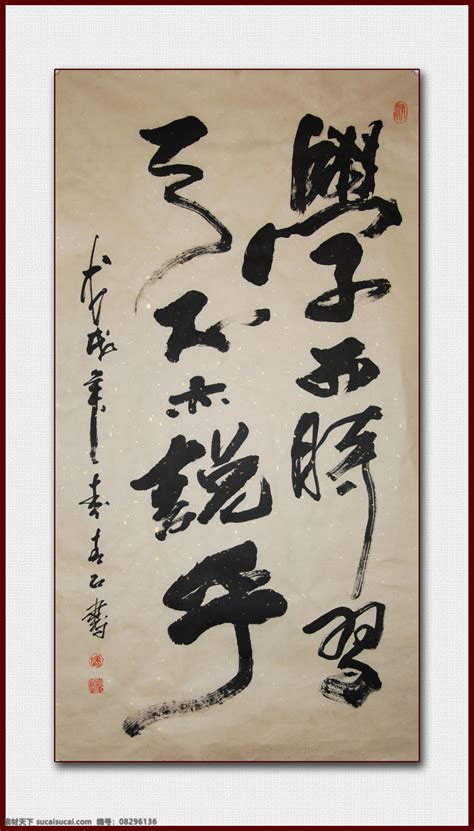 學而時習
之不亦說乎
戊戌年
素材天下 sucaisucai.com 编号：08296136